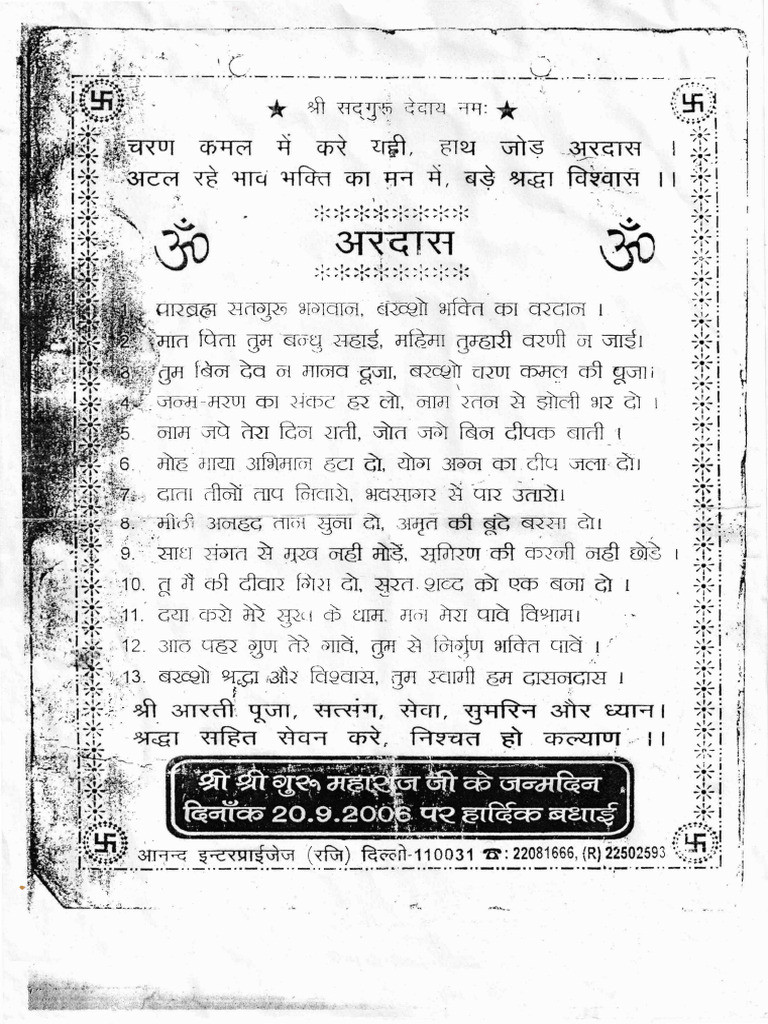 ★ श्री सद्गुरू देवाय नमः ★
चरण कमल में करे यही, हाथ जोड़ अरदास ।
अटल रहे भाव भक्ति का मन में, बड़े श्रद्धा विश्वास ।।
ॐ अरदास ॐ
1. पारब्रह्म सतगुरू भगवान, बख्शो भक्ति का वरदान ।
2. मात पिता तुम बन्धु सहाई, महिमा तुम्हारी वरणी न जाई।
3. तुम बिन देव न मानव दूजा, बख्शो चरण कमल की पूजा।
4. जन्म-मरण का संकट हर लो, नाम रतन से झोली भर दो ।
5. नाम जपे तेरा दिन राती, जोत जगे बिन दीपक बाती ।
6. मोह माया अभिमान हटा दो, योग अग्न का दीप जला दो।
7. दाता तीनों ताप निवारो, भवसागर से पार उतारो।
8. मीठी अनहद तान सुना दो, अमृत की बूंदे बरसा दो।
9. साध संगत से मुख नही मोड़ें, सुमिरण की करनी नही छोडे ।
10. तू मैं की दीवार गिरा दो, सुरत शब्द को एक बना दो ।
11. दया करो मेरे सुख के धाम, मन मेरा पावे विश्राम।
12. आठ पहर गुण तेरे गावें, तुम से निर्गुण भक्ति पावें ।
13. बख्शो श्रद्धा और विश्वास, तुम स्वामी हम दासनदास ।
श्री आरती पूजा, सत्संग, सेवा, सुमरिन और ध्यान।
श्रद्धा सहित सेवन करे, निश्चत हो कल्याण ।।
श्री श्री गुरू महाराज जी के जन्मदिन
दिनाँक 20.9.2006 पर हार्दिक बधाई
आनन्द इन्टरप्राईजेज (रजि) दिल्ली-110031 ☎: 22081666, (R) 22502593